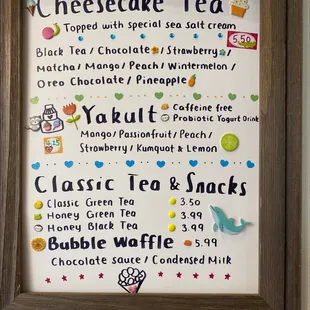 Cheesecake Tea
Topped with special sea salt cream
5.50
Black Tea / Chocolate / Strawberry /
Matcha / Mango / Peach / Wintermelon /
Oreo Chocolate / Pineapple
Yakult
Caffeine free
Probiotic Yogurt Drink
Mango / Passionfruit / Peach /
Strawberry / Kumquat & Lemon
Classic Tea & Snacks
Classic Green Tea 3.50
Honey Green Tea 3.99
Honey Black Tea 3.99
Bubble Waffle 5.99
Chocolate sauce / Condensed Milk